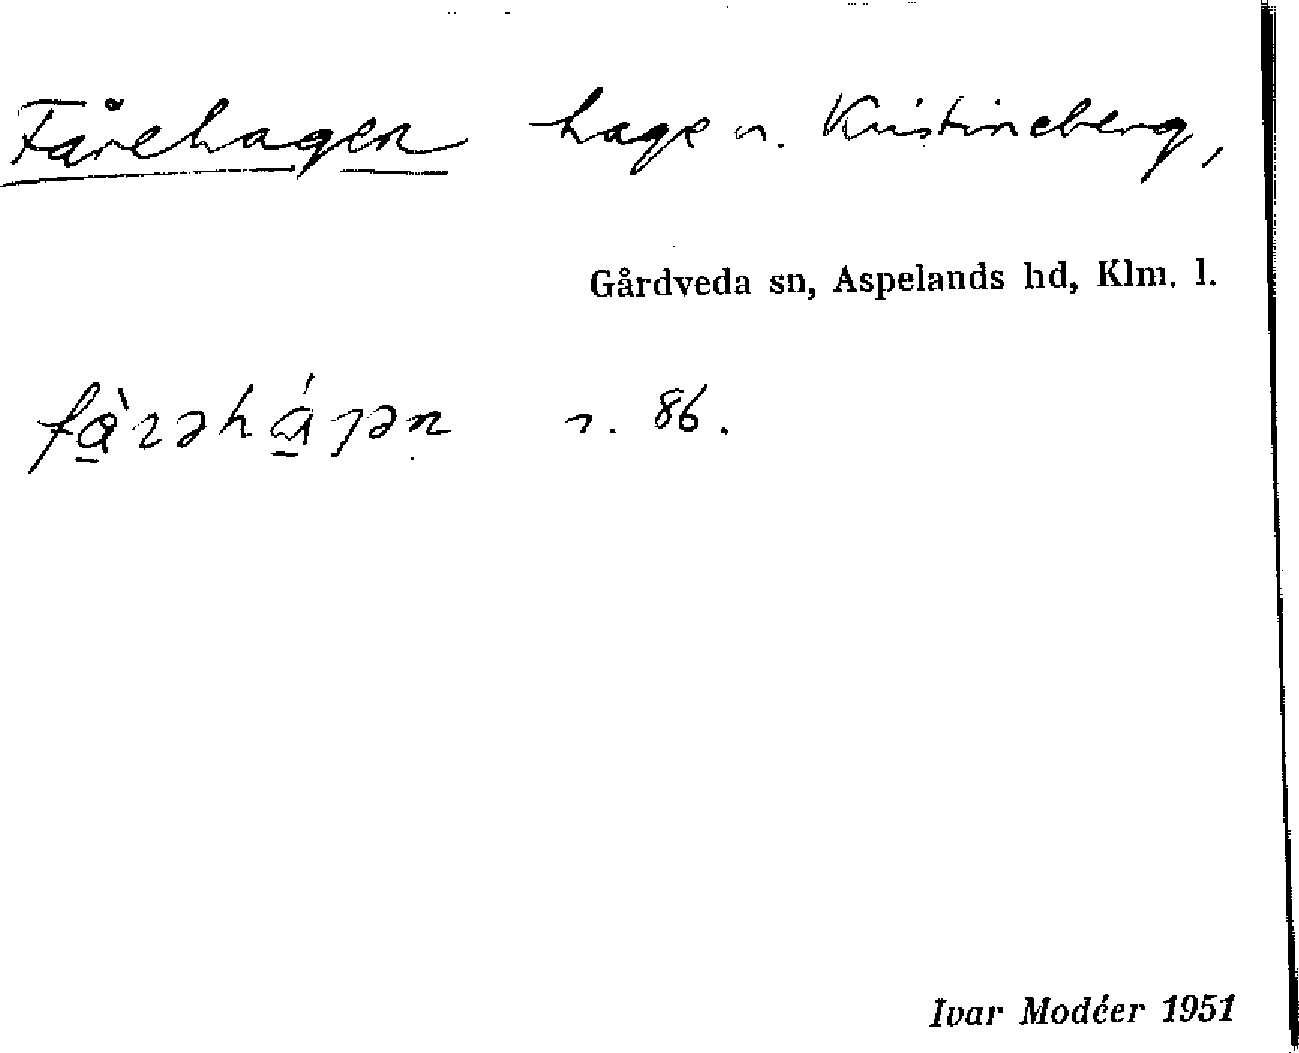 Fårehagen hage n. Kristineberg,
Gårdveda sn, Aspelands hd, Klm. l.
n. 86.
Ivar Modéer 1951